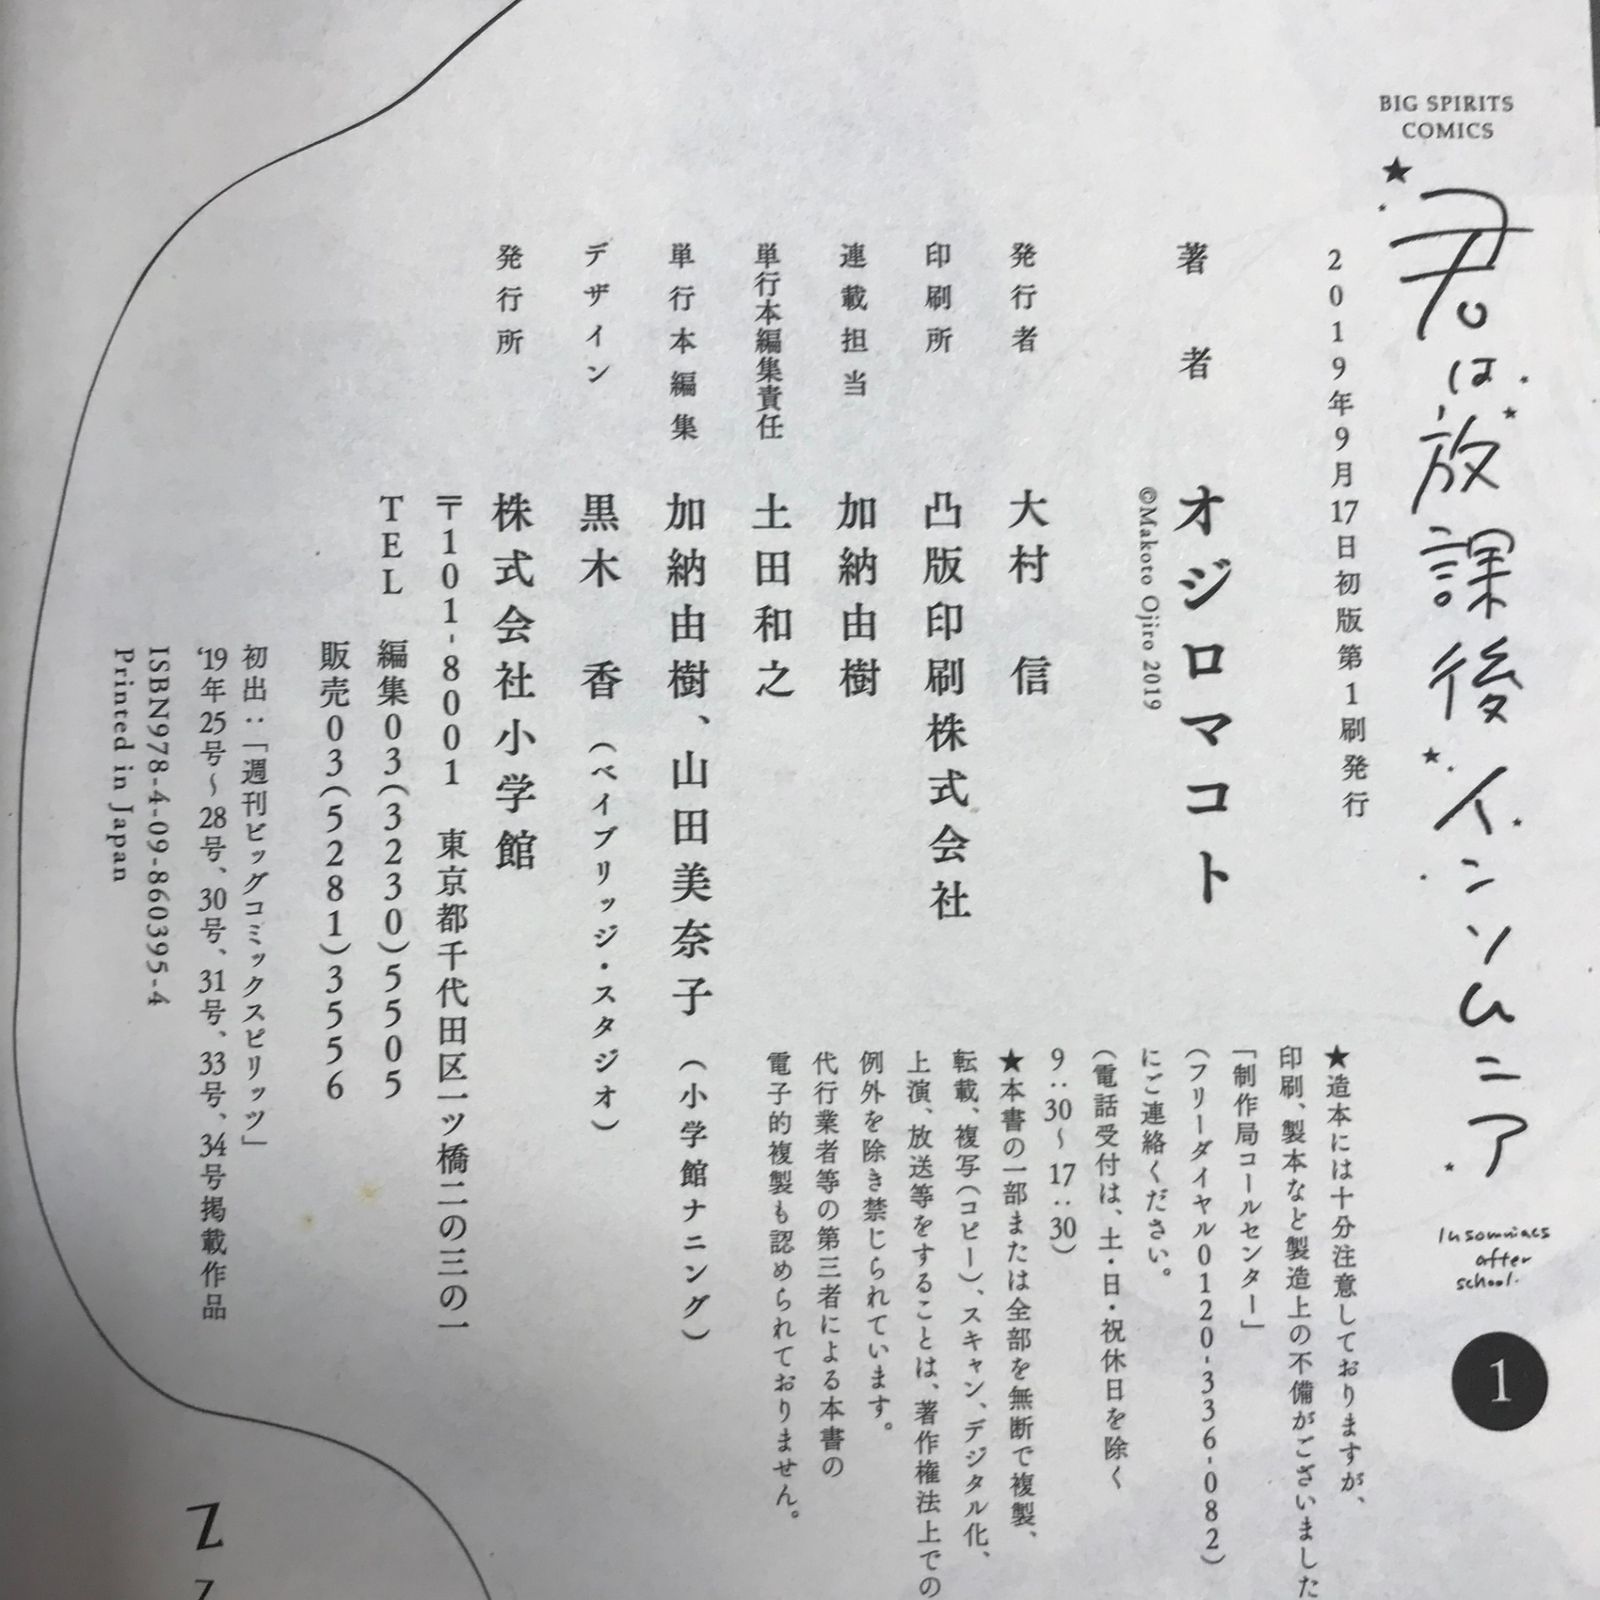 BIG SPIRITS
COMICS
君は放課後インソムニア
Insomniacs
after
school.
1
2019年9月17日初版第1刷発行
著者 オジロマコト
©Makoto Ojiro 2019
発行者 大村 信
印刷所 凸版印刷株式会社
連載担当 加納由樹
単行本編集責任 土田和之
単行本編集 加納由樹、山田美奈子(小学館ナニング)
デザイン 黒木 香(ベイブリッジ・スタジオ)
発行所 株式会社小学館
〒101-8001 東京都千代田区一ツ橋二の三の一
TEL 編集03(3230)5505
販売03(5281)3556
初出:「週刊ビッグコミックスピリッツ」
'19年25号〜28号、30号、31号、33号、34号掲載作品
ISBN978-4-09-860395-4
Printed in Japan
★造本には十分注意しておりますが、
印刷、製本など製造上の不備がございました
「制作局コールセンター」
(フリーダイヤル0120-336-082)
にご連絡ください。
(電話受付は、土・日・祝休日を除く
9:30〜17:30)
★本書の一部または全部を無断で複製、
転載、複写(コピー)、スキャン、デジタル化、
上演、放送等をすることは、著作権法上での
例外を除き禁じられています。
代行業者等の第三者による本書の
電子的複製も認められておりません。
Z
Z